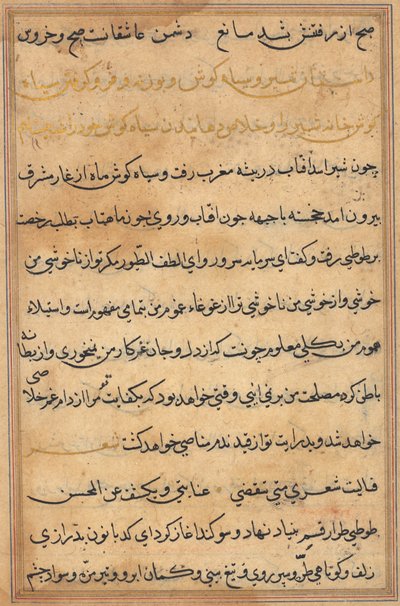 صبح از رفتنش شد مانع دشمن عاشقانست صبح و خروس
داستان شیر و سیاه گوش و بوزنه و فرو گرفتن سیاه
گوش خانه شیر را و خلاص دهانیدن سیاه گوش خود را
چون شیر اسد افتاب در بیشه مغرب رفت و سیاه کوش ماه از غار مشرق
بیرون امد خجسته با جبهه چون افتاب و روی چون ماهتاب بطلب رخصت
بر طوطی رفت و کفت ای سرمایه سرور و ای الطف الطیور مکر تو از ناخوشی من
خوشی و از خوشی من ناخوشی ترا از غوغاء غموم من بتمامی مفهوم است و استیلاء
هموم من بکلی معلوم چونست که از دل و جان غم کار من نمیخوری و از بطانه
باطن کرد مصلحت من بر نمی ایی وقتی خواهد بود که بکفایت تو مرا از دام غم خلاصی
خواهد شد و بدرایت تو از قید ندم مناصی خواهد کشت شعر
فیالیت شعری متی تنقضی عنایتی و یکشف عن المحسن
طوطی طرار قسم بنیاد نهاد و سوکند اغاز کرد ای کدبانو بدرازی
زلف و کوتاهی طره و سپر روی و تیغ بینی و کمان ابرو و تیر مژه و سواد چشم